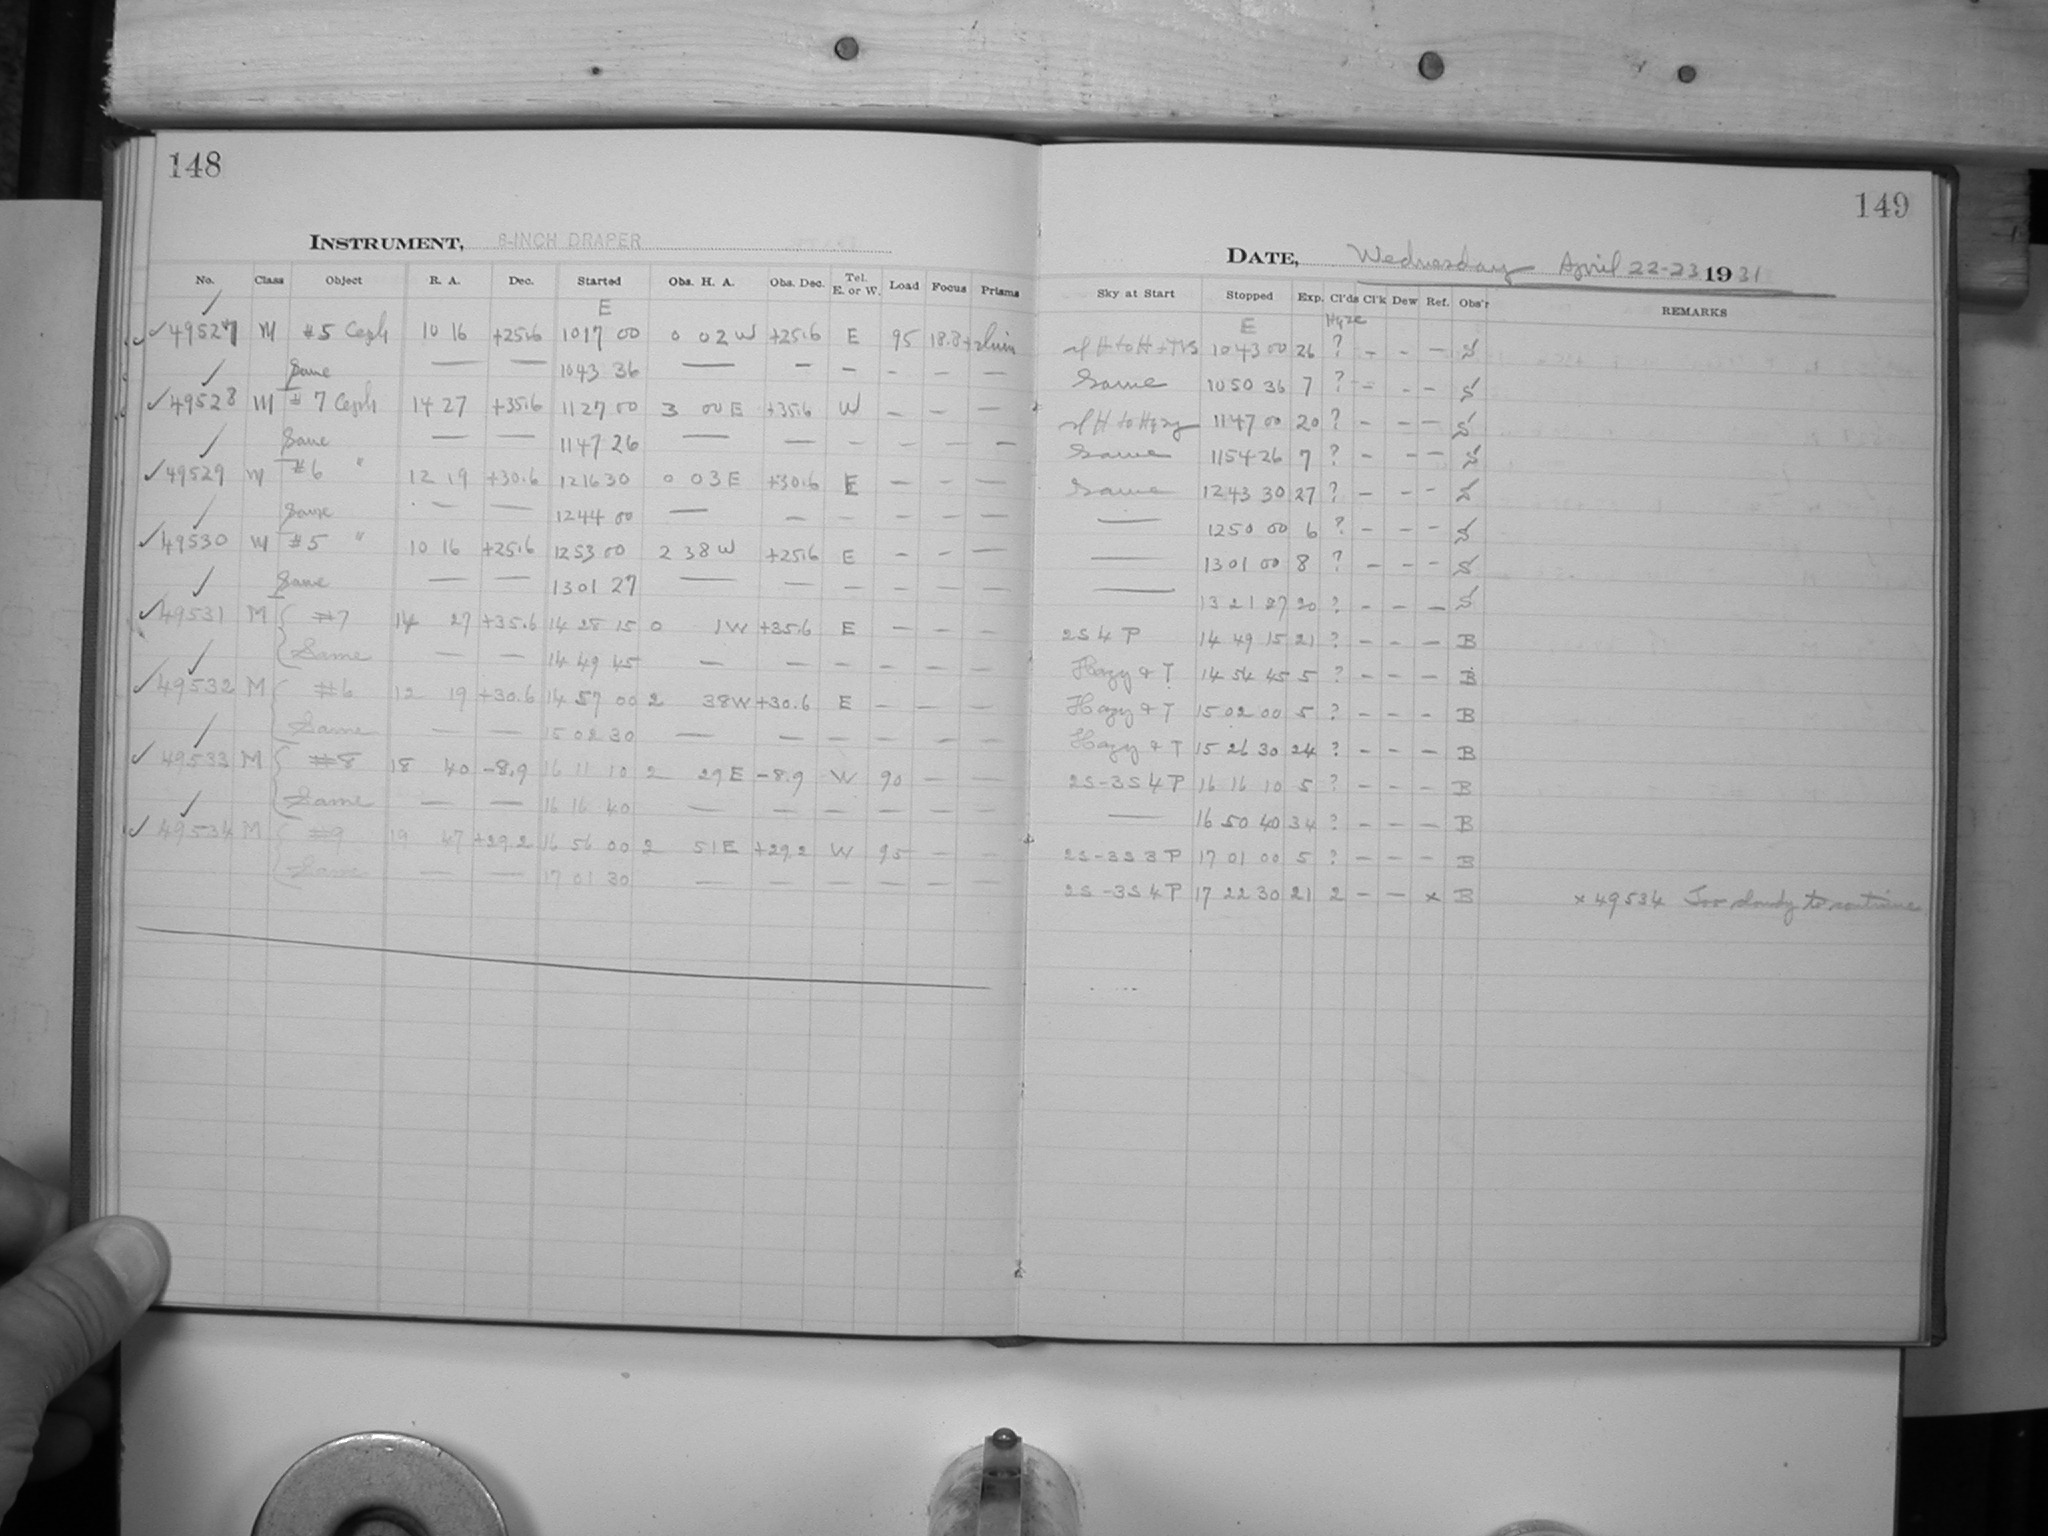 148
INSTRUMENT, 8-INCH DRAPER
No. Class Object R. A. Dec. Started Obs. H. A. Obs. Dec. Tel. E. or W. Load Focus Prisms
E
49527 M #5 Ceph 10 16 +25.6 10 17 00 0 02 W +25.6 E 95 18.8
Same — — 10 43 36 — — — - — —
49528 M #7 Ceph 14 27 +35.6 11 27 00 3 00 E +35.6 W — — —
Same — — 11 47 26 — — - - - —
49529 M #6 " 12 19 +30.6 12 16 30 0 03 E +30.6 E — — —
Same — — 12 44 00 — — — — — —
49530 M #5 " 10 16 +25.6 12 53 00 2 38 W +25.6 E — — —
Same — — 13 01 27 — — — — — —
49531 M #7 14 27 +35.6 14 28 15 0 1 W +35.6 E — — —
Same — — 14 49 45 — — — — — —
49532 M #6 12 19 +30.6 14 57 00 2 38 W +30.6 E — — —
Same — — 15 02 30 — — — — — —
49533 M #8 18 40 -8.9 16 11 10 2 29 E -8.9 W 90 — —
Same — — 16 16 40 — — — — — —
49534 M #9 19 47 +29.2 16 56 00 2 51 E +29.2 W 95 — —
Same — — 17 01 30 — — — — — —
149
DATE, Wednesday April 22-23 1931
Sky at Start Stopped Exp. Cl'ds Cl'k Dew Ref. Obs'r REMARKS
E Haze
10 43 00 26 ? — - — S
Same 10 50 36 7 ? - - - S
11 47 00 20 ? - - - S
Same 11 54 26 7 ? - - - S
Same 12 43 30 27 ? - - - S
— 12 50 00 6 ? - - - S
— 13 01 00 8 ? - - - S
— 13 21 27 20 ? - - - S
2S 4 P 14 49 15 21 ? - - - B
Hazy & T 14 54 45 5 ? - - - B
Hazy & T 15 02 00 5 ? - - - B
Hazy & T 15 26 30 24 ? - - - B
2S-3S 4 P 16 16 10 5 ? - - - B
— 16 50 40 34 ? - - - B
2S-3S 3 P 17 01 00 5 ? - - - B
2S-3S 4 P 17 22 30 21 2 - - x B x 49534 Too cloudy to continue